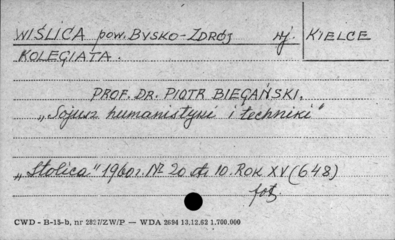 WIŚLICA pow. BUSKO-ZDRÓJ
KIELCE
KOLEGIATA.
PROF. DR. PIOTR BIEGAŃSKI.
"Sojusz humanistyki i techniki"
"Stolica" 1960 r. Nr 20 st. 10. ROK XV (648)
fot.
CWD - B-13-b, nr 2827/ZW/P — WDA 2694 13.12.62 1.700.000